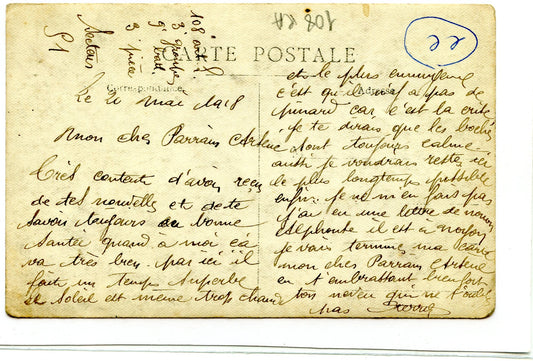 108 art. L
3 groupe
9 batt
3 pièce
Secteur
51
108 RA
CARTE POSTALE
Correspondance
Adresse
Le 20 mai 1918
Mon cher Parrain Arsene
Très contente d'avoir recu
de tes nouvelles et de te
savoir toujours en bonne
santée quand à moi cà
va très bien par ici il
fait un temps superbe
le soleil est même trop chaud
et le plus ennuyeux
c'est qu'il n'y a pas de
pinard car c'est la crise
je te dirais que les boches
sont toujours calme
aussi je voudrais rester ici
le plus longtemps possible
enfin je ne m'en fais pas
j'ai eu une lettre de
il est a Noyon
je vais terminer ma carte
mon cher Parrain Arsene
en t'embrassant bien fort
ton neveu qui ne t'oubli
pas Pierre